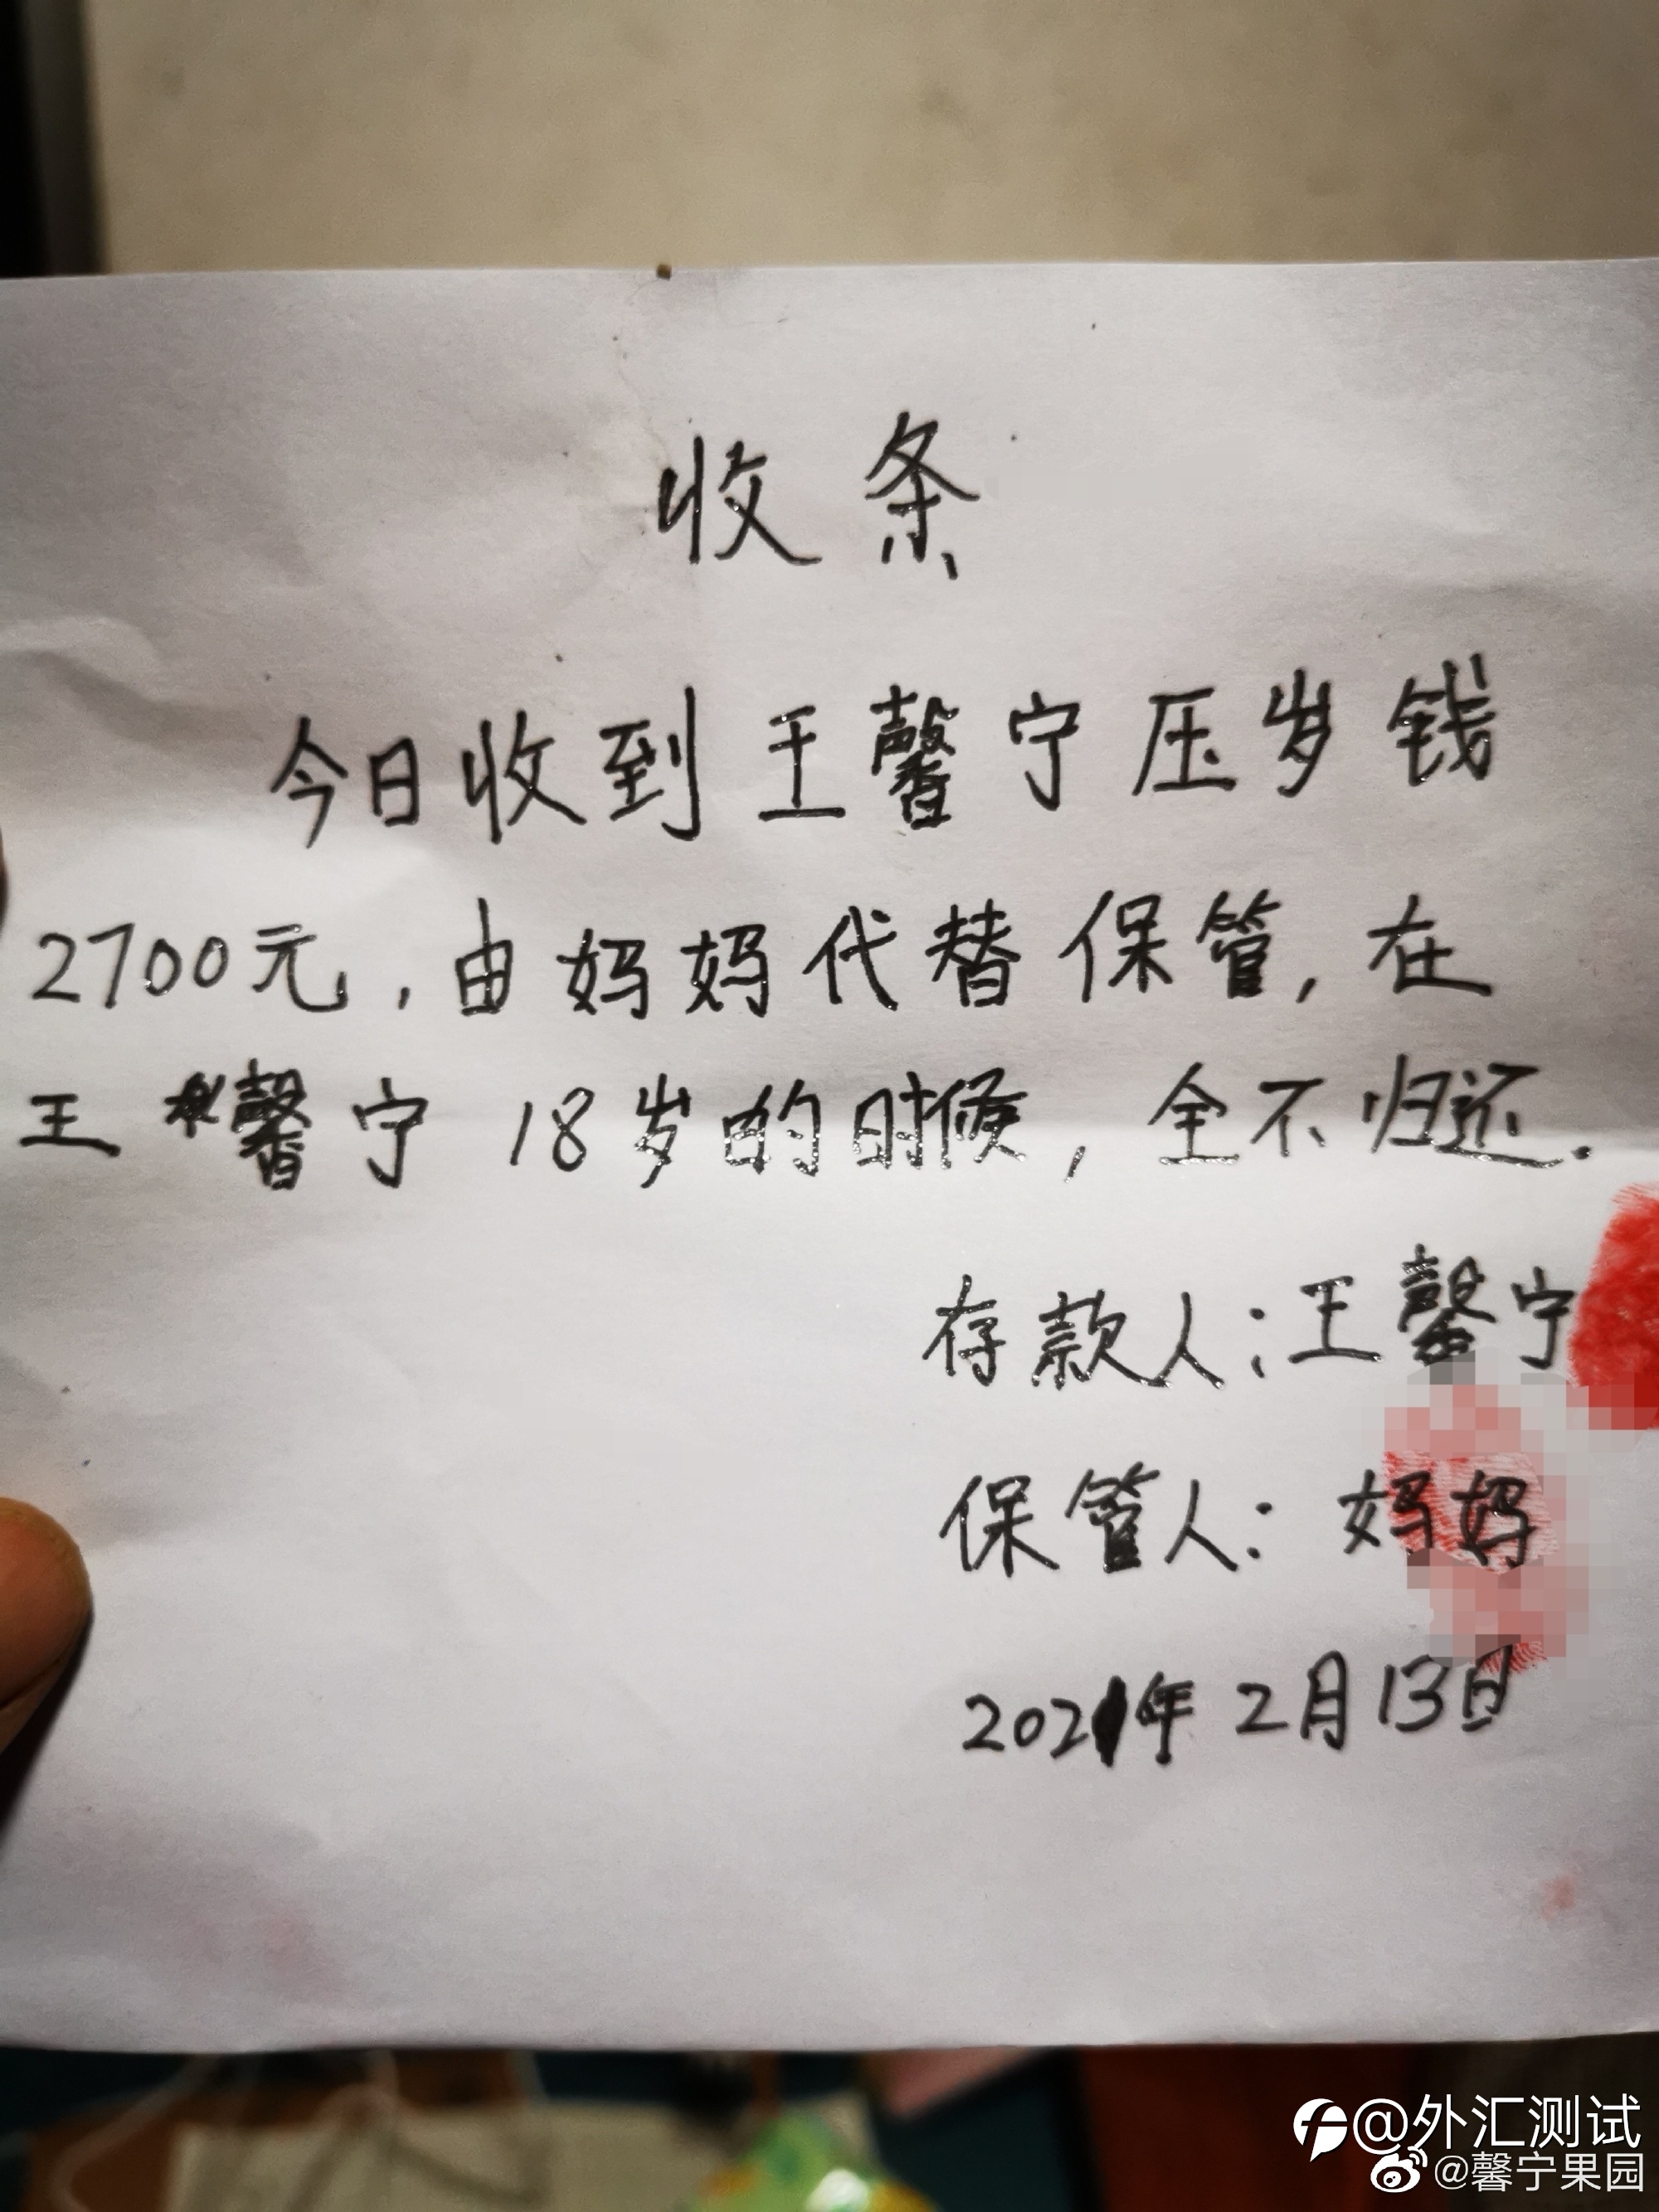 收条
今日收到王馨宁压岁钱
2700元,由妈妈代替保管,在
王馨宁18岁的时候,全不归还.
存款人:王馨宁
保管人:妈妈
2021年2月13日
@外汇测试
@馨宁果园